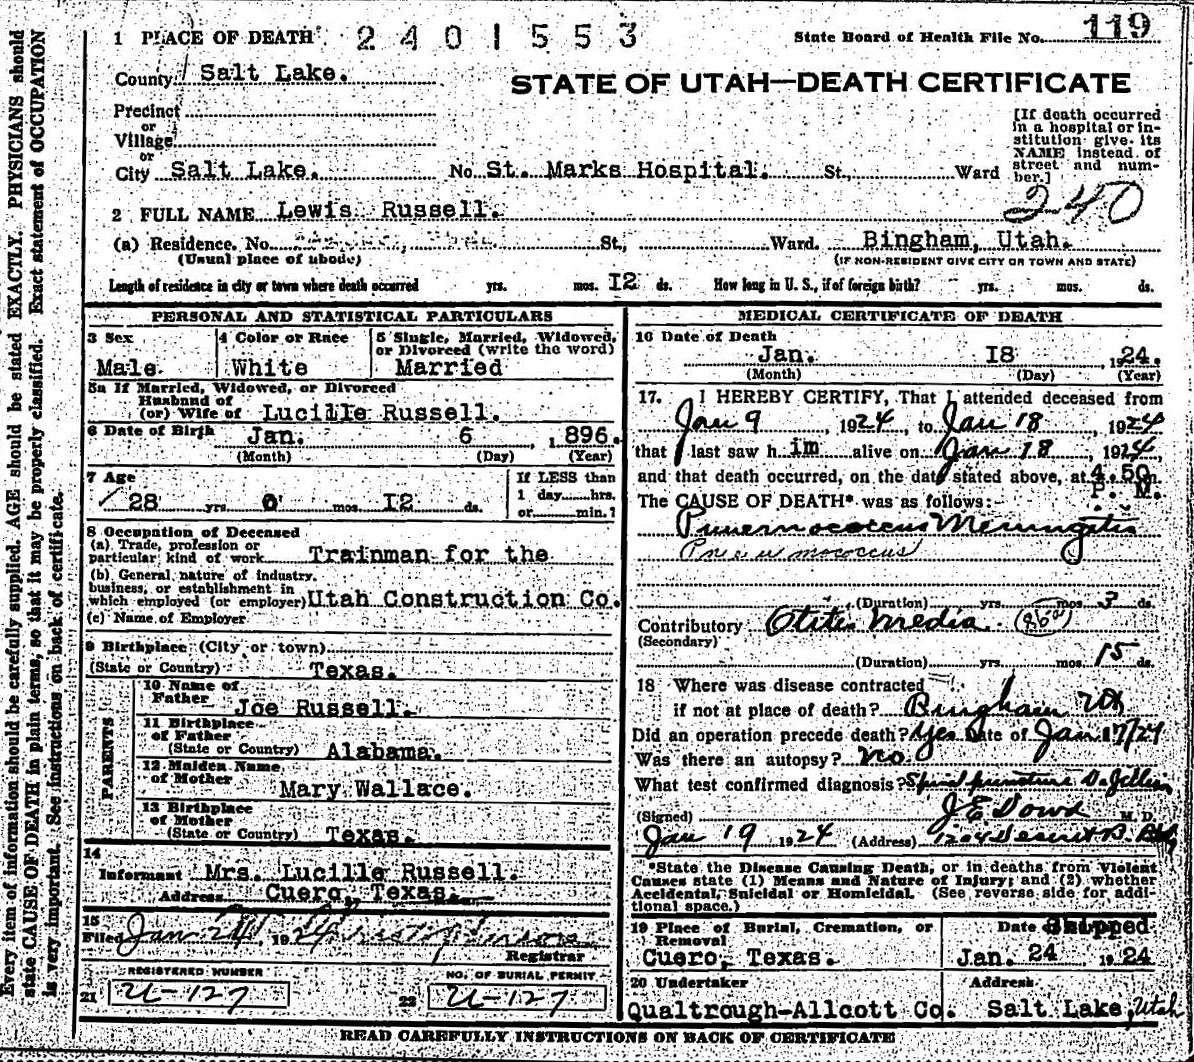 Every item of information should be carefully supplied. AGE should be stated EXACTLY. PHYSICIANS should
state CAUSE OF DEATH in plain terms, so that it may be properly classified. Exact statement of OCCUPATION
is very important. See instructions on back of certificate.
1 PLACE OF DEATH 2401553
State Board of Health File No. 119
County Salt Lake.
STATE OF UTAH—DEATH CERTIFICATE
Precinct
or
Village
or
City Salt Lake. No. St. Marks Hospital. St., Ward
[If death occurred
in a hospital or in-
stitution give its
NAME instead of
street and num-
ber.]
240
2 FULL NAME Lewis Russell.
(a) Residence. No. St., Ward. Bingham, Utah.
(Usual place of abode) (IF NON-RESIDENT GIVE CITY OR TOWN AND STATE)
Length of residence in city or town where death occurred yrs. mos. I2 ds. How long in U. S., if of foreign birth? yrs. mos. ds.
PERSONAL AND STATISTICAL PARTICULARS
3 Sex 4 Color or Race 5 Single, Married, Widowed,
or Divorced (write the word)
Male White Married
5a If Married, Widowed, or Divorced
Husband of
(or) Wife of Lucille Russell.
6 Date of Birth Jan. 6 1896.
(Month) (Day) (Year)
7 Age
28 yrs. 0 mos. I2 ds.
If LESS than
1 day......hrs.
or......min.?
8 Occupation of Deceased
(a) Trade, profession or
particular kind of work Trainman for the
(b) General nature of industry,
business, or establishment in
which employed (or employer) Utah Construction Co.
(c) Name of Employer
9 Birthplace (City or town)
(State or Country) Texas.
PARENTS
10 Name of
Father Joe Russell.
11 Birthplace
of Father
(State or Country) Alabama.
12 Maiden Name
of Mother Mary Wallace.
13 Birthplace
of Mother
(State or Country) Texas.
14
Informant Mrs. Lucille Russell.
Address Cuero, Texas.
15
Filed Jan 24, 1924
Registrar
REGISTERED NUMBER NO. OF BURIAL PERMIT
21 U-127 22 U-127
MEDICAL CERTIFICATE OF DEATH
16 Date of Death
Jan. I8 1924.
(Month) (Day) (Year)
17. I HEREBY CERTIFY, That I attended deceased from
Jan 9, 1924, to Jan 18, 1924
that I last saw h im alive on Jan 18, 1924,
and that death occurred, on the date stated above, at 4.50 m.
P. M.
The CAUSE OF DEATH* was as follows:
Pneumococcus Meningitis
Pneumococcus
(Duration) yrs. mos. 3 ds.
Contributory Otitis Media.
(Secondary)
(Duration) yrs. mos. 15 ds.
18 Where was disease contracted
if not at place of death? Bingham Ut
Did an operation precede death? Yes Date of Jan 17/24
Was there an autopsy? No
What test confirmed diagnosis? Spinal puncture
(Signed) J E Dowd M. D.
Jan 19 1924 (Address) 1204 Deseret B. Bldg
*State the Disease Causing Death, or in deaths from Violent
Causes state (1) Means and Nature of Injury; and (2) whether
Accidental, Suicidal or Homicidal. (See reverse side for addi-
tional space.)
19 Place of Burial, Cremation, or
Removal Date Shipped
Cuero, Texas. Jan. 24 1924
20 Undertaker Address
Qualtrough-Allcott Co. Salt Lake, Utah
READ CAREFULLY INSTRUCTIONS ON BACK OF CERTIFICATE